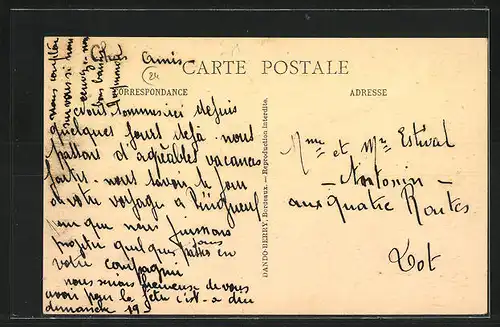 Chers Amis
24
CARTE POSTALE
CORRESPONDANCE
ADRESSE
Nous sommes ici depuis
quelques jours déjà - nous
passons d'agréables vacances
faites - nous savoir le jour
de votre voyage à
que nous puissions
projeter quelques
votre compagnie
nous serions heureuse de vous
avoir pour la fête c'est-a dire
dimanche 19
nous
sur vous si nous
DANDO-BERRY, Bordeaux. — Reproduction interdite.
Mme et Mr Estival
- Antonin -
aux Quatre Routes
Lot